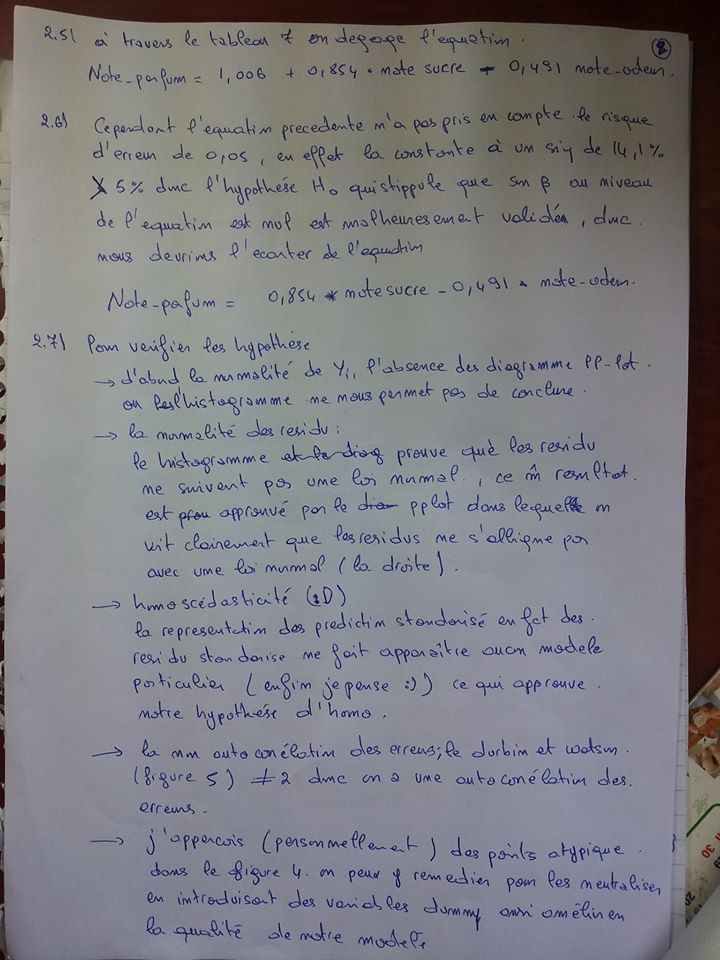 2.5) à travers le tableau 7 on degage l'equation.
②
Note-parfum = 1,006 + 0,854 * note sucre - 0,491 note-odeur.
2.6) Cependant l'equation precedente n'a pas pris en compte le risque
d'erreur de 0,05, en effet la constante à un sig de 14,1%
5% donc l'hypothése H0 qui stippule que son β au niveau
de l'equation est nul est malheuresement validée, donc
nous devrions l'ecarter de l'equation
Note-parfum = 0,854 * note sucre - 0,491 * note-odeur.
2.7) Pour verifier les hypothése
→ d'abord la normalité de Yi, l'absence des diagramme PP-plot.
ou l'histogramme ne nous permet pas de conclure.
→ la normalité des residu :
le histogramme prouve que les residu
ne suivent pas une loi normal., ce m̂ resultat.
est approuvé par le pplot dans lequel on
voit clairement que les residus ne s'alligne pas
avec une loi normal (la droite).
→ homoscédasticité (:D)
la representation des prediction standarisé en fct des.
residu standarise ne fait apparaître aucun modele
particulier (enfin je pense :)) ce qui approuve.
notre hypothése d'homo.
→ la non auto corrélation des erreurs; le durbin et watson.
(figure 5) ≠ 2 donc on a une autocorrélation des.
erreurs.
→ j'appercois (personnellement) des points atypique.
dans le figure 4. on peux y remedier pour les neutraliser
en introduisant des variables dummy ainsi
la qualité de notre modelé